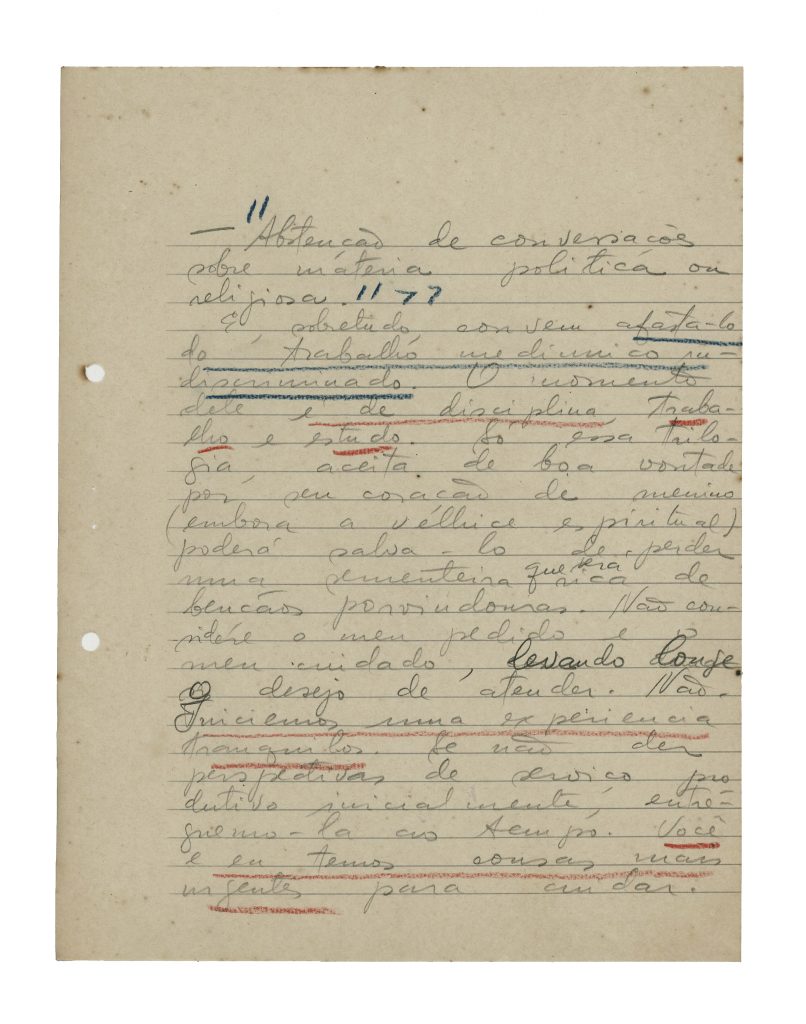 — "Abstenção de conversações
sobre máteria politicá ou
religiosa." —??
E, sobretudo convem afastá-lo
do trabalho mediunico in-
discriminado. O momento
dele é de disciplina, traba-
lho e estudo. Só essa trilo-
gia aceita de boa vontade
por seu coração de menino
(embora a vélhice espiritual)
poderá salva-lo de perder
uma sementeira que será rica de
bençãos porvindouras. Não con-
sidére o meu pedido e o
meu cuidado, levando longe
o desejo de atender. Não.
Iniciemos uma experiencia
tranquilos. Se não der
perspetivas de serviço pro
dutivo inicialmente, entré-
guemo-la ao tempo. Você
e eu temos cousas mais
urgentes para cuidar.